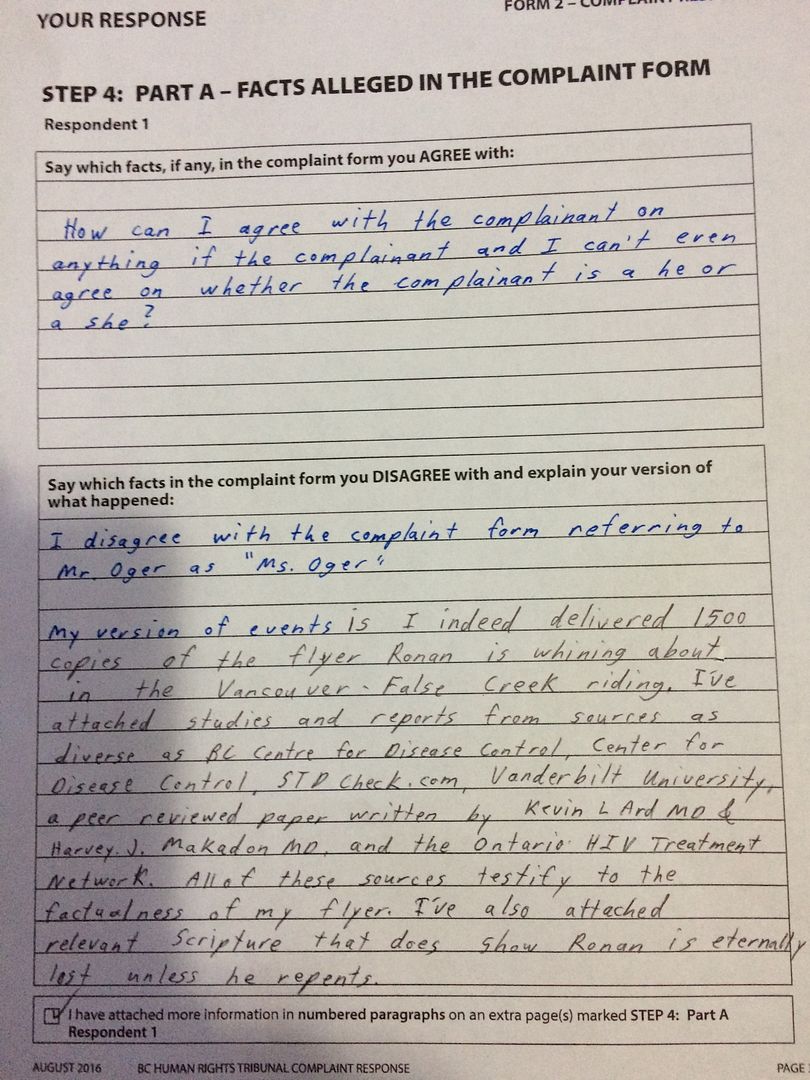 YOUR RESPONSE
FORM 2 – COMPLAINT
STEP 4: PART A – FACTS ALLEGED IN THE COMPLAINT FORM
Respondent 1
Say which facts, if any, in the complaint form you AGREE with:
How can I agree with the complainant on
anything if the complainant and I can't even
agree on whether the complainant is a he or
a she?
Say which facts in the complaint form you DISAGREE with and explain your version of
what happened:
I disagree with the complaint form referring to
Mr. Oger as "Ms. Oger"
My version of events is I indeed delivered 1500
copies of the flyer Ronan is whining about
in the Vancouver-False Creek riding. I've
attached studies and reports from sources as
diverse as BC Centre for Disease Control, Center for
Disease Control, STD Check.com, Vanderbilt University,
a peer reviewed paper written by Kevin L Ard MD &
Harvey J. Makadon MD, and the Ontario HIV Treatment
Network. All of these sources testify to the
factualness of my flyer. I've also attached
relevant Scripture that does show Ronan is eternally
lost unless he repents.
I have attached more information in numbered paragraphs on an extra page(s) marked STEP 4: Part A
Respondent 1
AUGUST 2016 BC HUMAN RIGHTS TRIBUNAL COMPLAINT RESPONSE PAGE